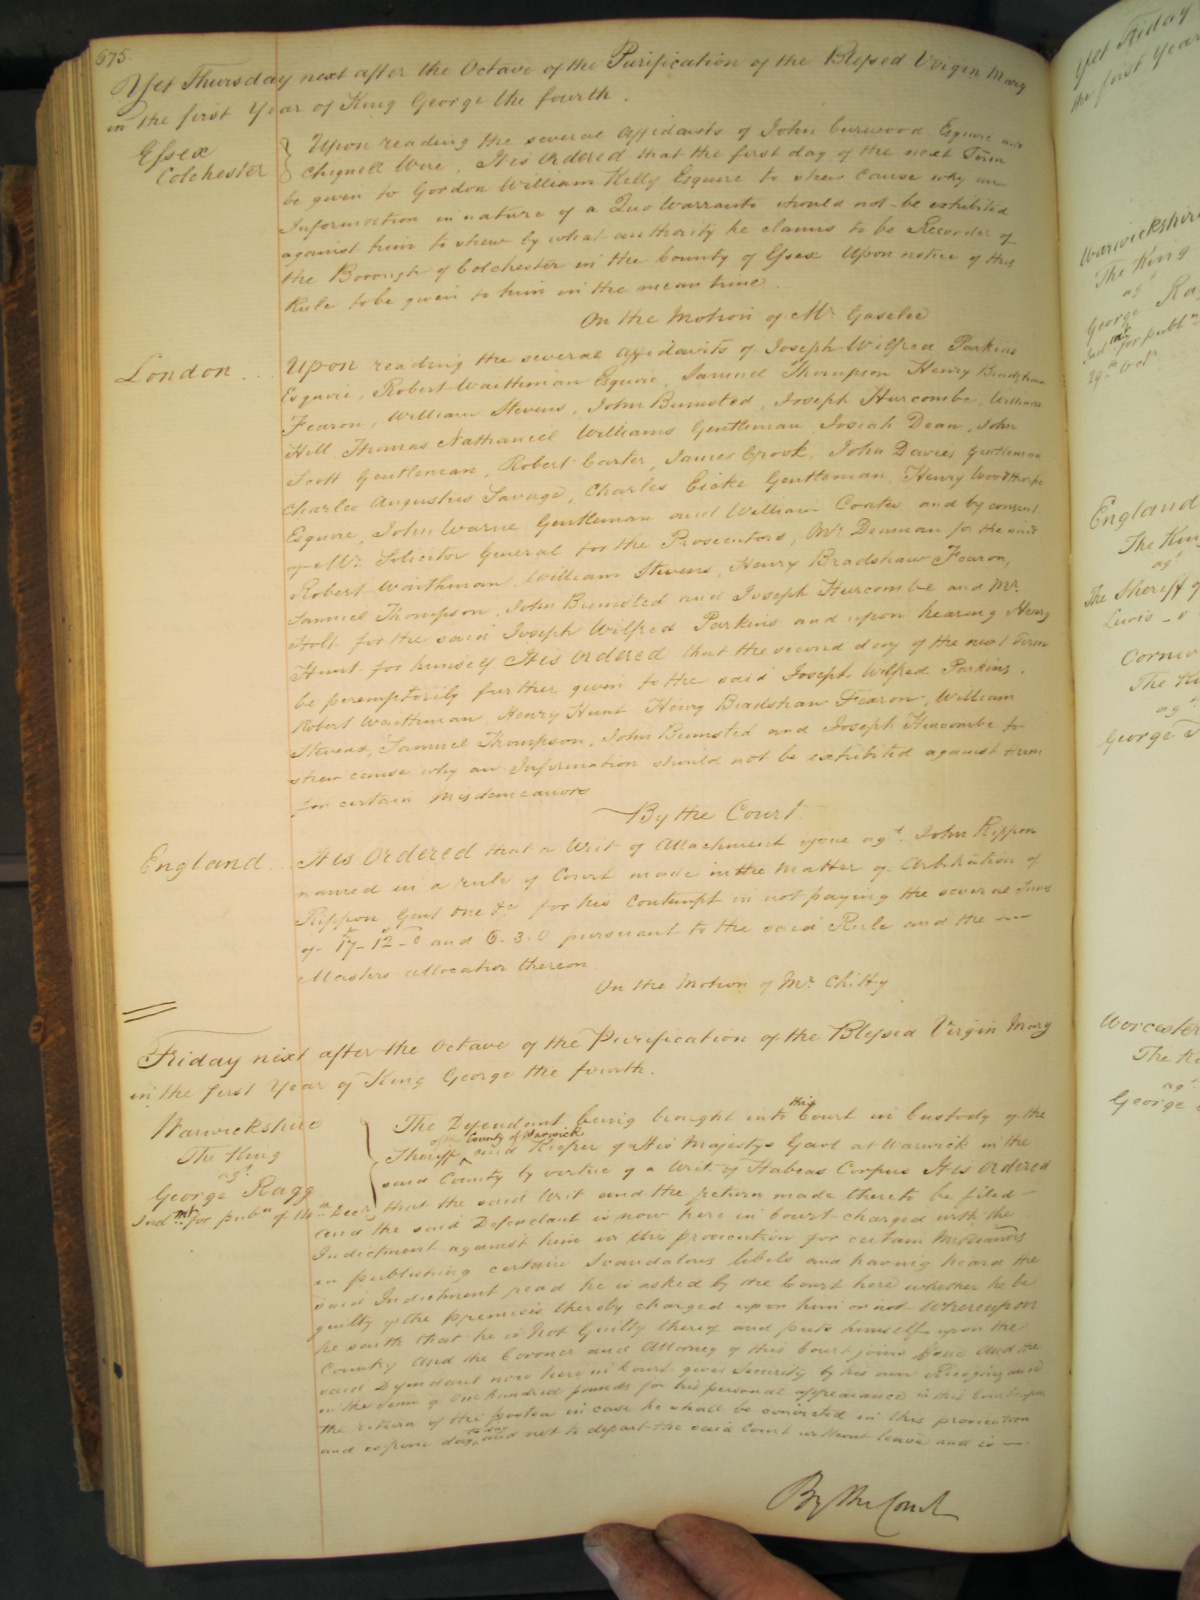 675.
Yet Thursday next after the Octave of the Purification of the Blessed Virgin Mary
in the first Year of King George the fourth.
Essex
Colchester
Upon reading the several affidavits of John Curwood Esquire and
Chignell Wire, It is Ordered that the first day of the next Term
be given to Gordon William Kelly Esquire to shew cause why an
Information in nature of a Quo Warranto should not be exhibited
against him to shew by what authority he claims to be Recorder of
the Borough of Colchester in the County of Essex Upon notice of this
Rule to be given to him in the mean time.
On the Motion of Mr. Gaselee
London
Upon reading the several affidavits of Joseph Wilfred Parkins
Esquire, Robert Waithman Esquire, Samuel Thompson Henry Bradshaw
Fearon, William Stevens, John Bumsted, Joseph Hurcombe, William
Hill Thomas Nathaniel Williams Gentleman, Josiah Dean, John
Scott Gentleman, Robert Carter, James Crook, John Davies Gentleman
Charles Augustus Savage, Charles Gentleman, Henry Woodthorpe
Esquire, John Warne Gentleman and William Coates and by consent
of Mr. Solicitor General for the Prosecutors, Mr. Denman for the said
Robert Waithman, William Stevens, Henry Bradshaw Fearon,
Samuel Thompson, John Bumsted and Joseph Hurcombe and Mr.
Holt for the said Joseph Wilfred Parkins and upon hearing Henry
Hunt for himself It is Ordered that the second day of the next Term
be peremptorily further given to the said Joseph Wilfred Parkins,
Robert Waithman, Henry Hunt Henry Bradshaw Fearon, William
Stevens, Samuel Thompson, John Bumsted and Joseph Hurcombe to
shew cause why an Information should not be exhibited against them
for certain misdemeanors
By the Court.
England
It is Ordered that a Writ of Attachment issue agt. John Rippon
named in a rule of Court made in the Matter of Arbitration of
Rippon Gent one &c for his Contempt in not paying the several Sums
of 17-12-0 and 6.3.0 pursuant to the said Rule and the
Masters allocatur thereon
On the Motion of Mr. Chitty
Friday next after the Octave of the Purification of the Blessed Virgin Mary
in the first Year of King George the fourth.
Warwickshire
The King
agt
George Ragg
Indmt for pubn of 14th Decr
The Defendant being brought into this Court in Custody of the
Sheriff of the County of Warwick and Keeper of His Majestys Gaol at Warwick in the
said County by virtue of a Writ of Habeas Corpus It is Ordered
that the said Writ and the return made thereto be filed
and the said Defendant is now here in Court charged with the
Indictment against him in this prosecution for certain Misdemrs
in publishing certain Scandalous libels and having heard the
said Indictment read he is asked by the Court here whether he be
guilty of the premises thereby charged upon him or not Whereupon
he saith that he is Not Guilty thereof and puts himself upon the
Country And the Coroner and Attorney of this Court joins Issue And the
said Defendant now here in Court gives Security by his own Recognizance
in the Sum of One hundred pounds for his personal appearance in this Court upon
the return of the postea in case he shall be convicted in this prosecution
and so from day to day and not to depart the said Court without leave and is
By the Court
Yet Friday
the first Year
Warwickshire
The King
agt
George Ragg
Indmt for publn
29th Octr.
England
The King
agt
The Sheriff of
Lewis
Cornwall
The King
agt
George
Worcester
The King
agt
George